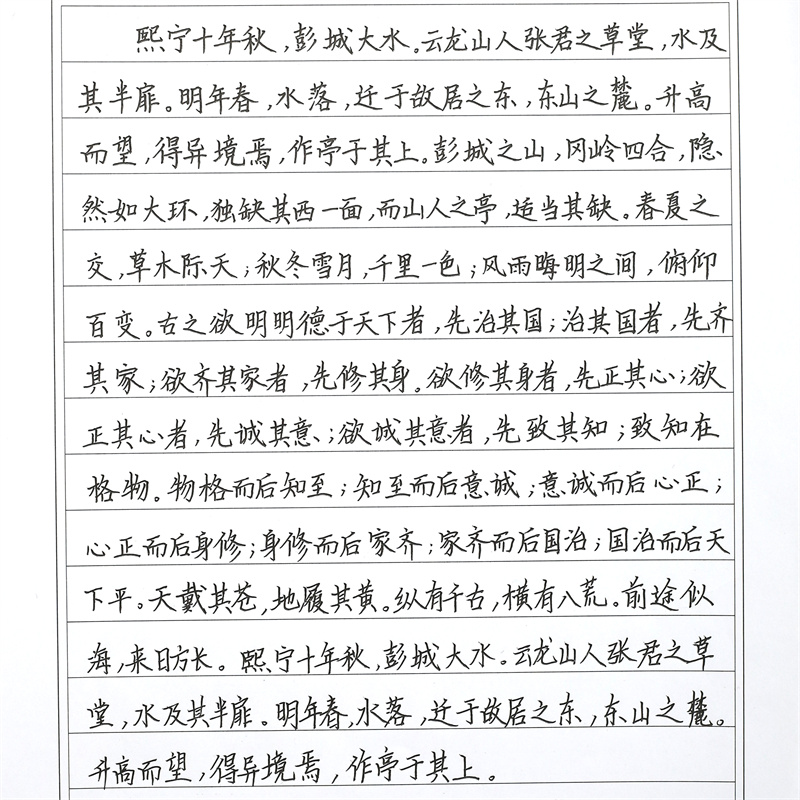 熙宁十年秋，彭城大水。云龙山人张君之草堂，水及
其半扉。明年春，水落，迁于故居之东，东山之麓。升高
而望，得异境焉，作亭于其上。彭城之山，冈岭四合，隐
然如大环，独缺其西一面，而山人之亭，适当其缺。春夏之
交，草木际天；秋冬雪月，千里一色；风雨晦明之间，俯仰
百变。古之欲明明德于天下者，先治其国；治其国者，先齐
其家；欲齐其家者，先修其身。欲修其身者，先正其心；欲
正其心者，先诚其意；欲诚其意者，先致其知；致知在
格物。物格而后知至；知至而后意诚；意诚而后心正；
心正而后身修；身修而后家齐；家齐而后国治；国治而后天
下平。天戴其苍，地履其黄。纵有千古，横有八荒。前途似
海，来日方长。熙宁十年秋，彭城大水。云龙山人张君之草
堂，水及其半扉。明年春，水落，迁于故居之东，东山之麓。
升高而望，得异境焉，作亭于其上。